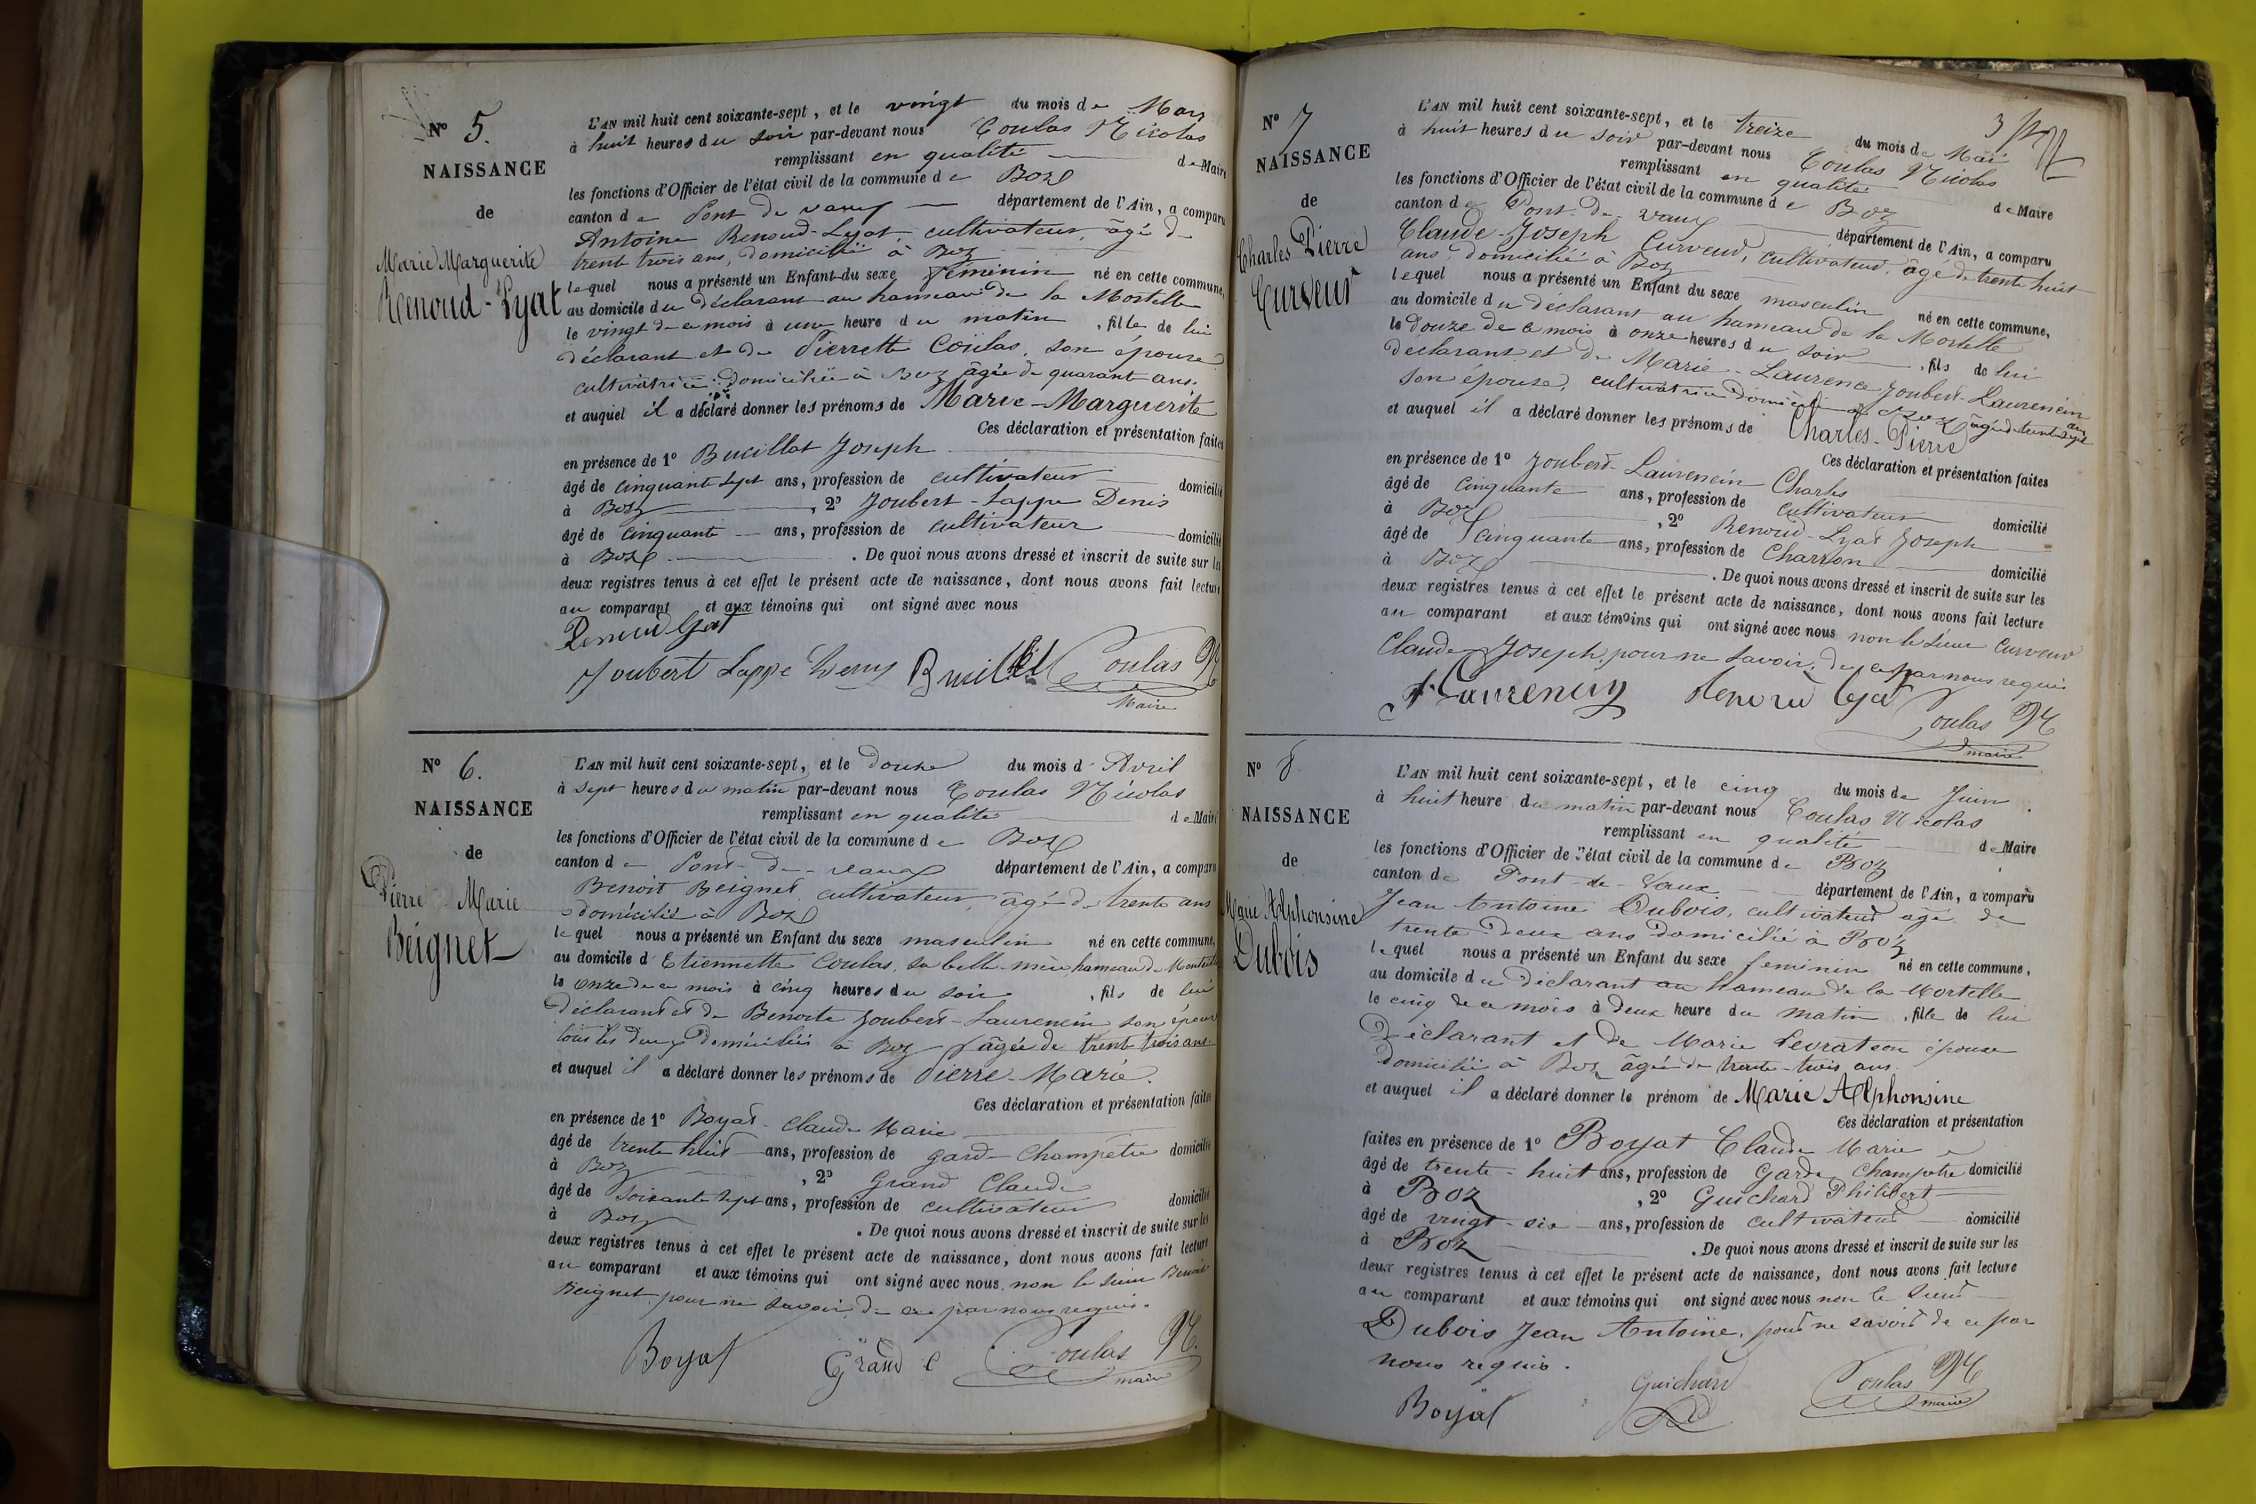 N° 5.
NAISSANCE
de
Marie Marguerite
Renoud-Lyat
L'AN mil huit cent soixante-sept, et le vingt du mois de Mars
à huit heures du soir par-devant nous Coulas Nicolas
remplissant en qualité de Maire
les fonctions d'Officier de l'état civil de la commune de Boz
canton de Pont de vaux département de l'Ain, a comparu
Antoine Renoud-Lyat, cultivateur, âgé de
trent trois ans, domicilié à Boz
lequel nous a présenté un Enfant du sexe féminin né en cette commune,
au domicile du déclarant au hameau de la Mortelle
le vingt de ce mois à une heure du matin, fille de lui
déclarant et de Pierrette Coulas, son épouse
cultivatrice domiciliée à Boz âgée de quarant ans.
et auquel il a déclaré donner les prénoms de Marie-Marguerite
Ces déclaration et présentation faites
en présence de 1° Bucillat Joseph
âgé de cinquante sept ans, profession de cultivateur domicilié
à Boz, 2° Joubert-Lappe Denis
âgé de cinquante ans, profession de cultivateur domicilié
à Boz. De quoi nous avons dressé et inscrit de suite sur les
deux registres tenus à cet effet le présent acte de naissance, dont nous avons fait lecture
au comparant et aux témoins qui ont signé avec nous
Renoud Lyat
Joubert Lappe Deny Coulas N
Maire
N° 6.
NAISSANCE
de
Pierre Marie
Beignet
L'AN mil huit cent soixante-sept, et le douze du mois d'Avril
à sept heures du matin par-devant nous Coulas Nicolas
remplissant en qualité de Maire
les fonctions d'Officier de l'état civil de la commune de Boz
canton de Pont-de-vaux département de l'Ain, a comparu
Benoit Beignet cultivateur, âgé de trente ans
domicilié à Boz
lequel nous a présenté un Enfant du sexe masculin né en cette commune,
au domicile d'Etiennette Coulas, sa belle-mère hameau de
le onze de ce mois à cinq heures du soir, fils de lui
déclarant et de Benoite Joubert-Laurencin son épouse
tous les deux domiciliés à Boz âgée de trent trois ans.
et auquel il a déclaré donner les prénoms de Pierre-Marie.
Ces déclaration et présentation faites
en présence de 1° Boyat Claude Marie
âgé de trente huit ans, profession de garde champêtre domicilié
à Boz, 2° Grand Claude
âgé de soixante sept ans, profession de cultivateur domicilié
à Boz. De quoi nous avons dressé et inscrit de suite sur les
deux registres tenus à cet effet le présent acte de naissance, dont nous avons fait lecture
au comparant et aux témoins qui ont signé avec nous, non le sieur Benoit
Beignet pour ne savoir, de ce par nous requis.
Boyat Grand C Coulas N.
maire
3
N° 7
NAISSANCE
de
Charles Pierre
Curveur
L'AN mil huit cent soixante-sept, et le treize du mois de Mai
à huit heures du soir par-devant nous Coulas Nicolas
remplissant en qualité de Maire
les fonctions d'Officier de l'état civil de la commune de Boz
canton de Pont-de-vaux département de l'Ain, a comparu
Claude-Joseph Curveur, cultivateur, âgé de trente huit
ans, domicilié à Boz
lequel nous a présenté un Enfant du sexe masculin né en cette commune,
au domicile du déclarant au hameau de la Mortelle
le douze de ce mois à onze heures du soir, fils de lui
déclarant et de Marie-Laurence Joubert-Laurencin
son épouse, cultivatrice domiciliée à Boz âgée de trente sept ans
et auquel il a déclaré donner les prénoms de Charles-Pierre
Ces déclaration et présentation faites
en présence de 1° Joubert-Laurencin Charles
âgé de cinquante ans, profession de cultivateur domicilié
à Boz, 2° Renoud-Lyat Joseph
âgé de cinquante ans, profession de Charron domicilié
à Boz. De quoi nous avons dressé et inscrit de suite sur les
deux registres tenus à cet effet le présent acte de naissance, dont nous avons fait lecture
au comparant et aux témoins qui ont signé avec nous non le sieur Curveur
Claude Joseph, pour ne savoir, de ce par nous requis
Laurencin Renoud Lyat
Coulas N
maire
N° 8
NAISSANCE
de
Marie Alphonsine
Dubois
L'AN mil huit cent soixante-sept, et le cinq du mois de Juin.
à huit heure du matin par-devant nous Coulas Nicolas
remplissant en qualité de Maire
les fonctions d'Officier de l'état civil de la commune de Boz
canton de Pont-de-Vaux département de l'Ain, a comparu
Jean Antoine Dubois, cultivateur agé de
trente deux ans domicilié à Boz
lequel nous a présenté un Enfant du sexe feminin né en cette commune,
au domicile du Déclarant au Hameau de la Mortelle
le cinq de ce mois à deux heure du matin, fille de lui
Déclarant et de Marie Levrat son épouse
domiciliée à Boz âgée de trente-trois ans.
et auquel il a déclaré donner le prénom de Marie Alphonsine
Ces déclaration et présentation
faites en présence de 1° Boyat Claude Marie
âgé de trente-huit ans, profession de Garde Champetre domicilié
à Boz, 2° Guichard Philibert
âgé de vingt-six ans, profession de cultivateur domicilié
à Boz. De quoi nous avons dressé et inscrit de suite sur les
deux registres tenus à cet effet le présent acte de naissance, dont nous avons fait lecture
au comparant et aux témoins qui ont signé avec nous non le Sieur
Dubois Jean Antoine, pour ne savoir de ce par
nous requis.
Boyat Guichard Coulas N
maire